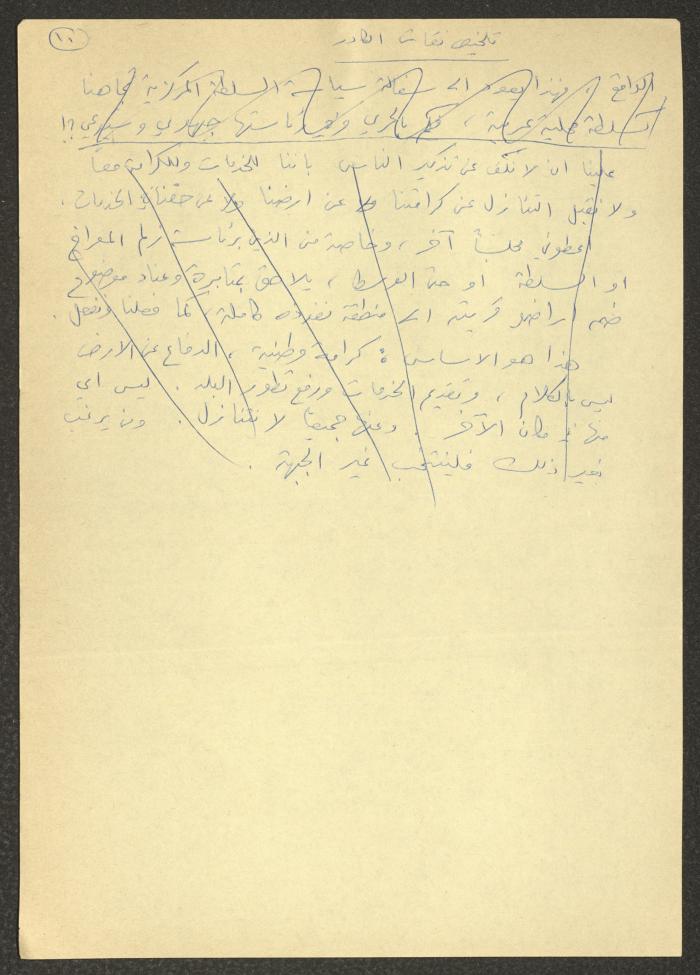 ١٠
تلخيص نقاش الكادر
الواقع، فهذا يعود الى سفالة سياسة السلطة المركزية تجاهنا
كسلطة محلية عربية، فكم بالحري ورئاستها جبهوي وشيوعي؟!
علينا ان لا نكف عن تذكير الناس باننا للخدمات وللكرامة معاً
ولا نقبل التنازل عن كرامتنا ولا عن ارضنا ولا عن حقنا في الخدمات.
اعطوني مجلساً آخر، وخاصة من الذين برئاسة زلم المعراخ
او السلطة او حتى الوسط، يلاحق بمثابرة وعناد موضوع
ضم اراضي قريته الى منطقة نفوذه كاملة، كما فعلنا ونفعل.
هذا هو الاساس: كرامة وطنية، الدفاع عن الارض
ليس بالكلام، وتقديم الخدمات ورفع تطور البلد. ليس اي
منها في مكان الآخر. وعنها جميعاً لا نتنازل. ومن يرغب
بغير ذلك فلينتخب غير الجبهة.